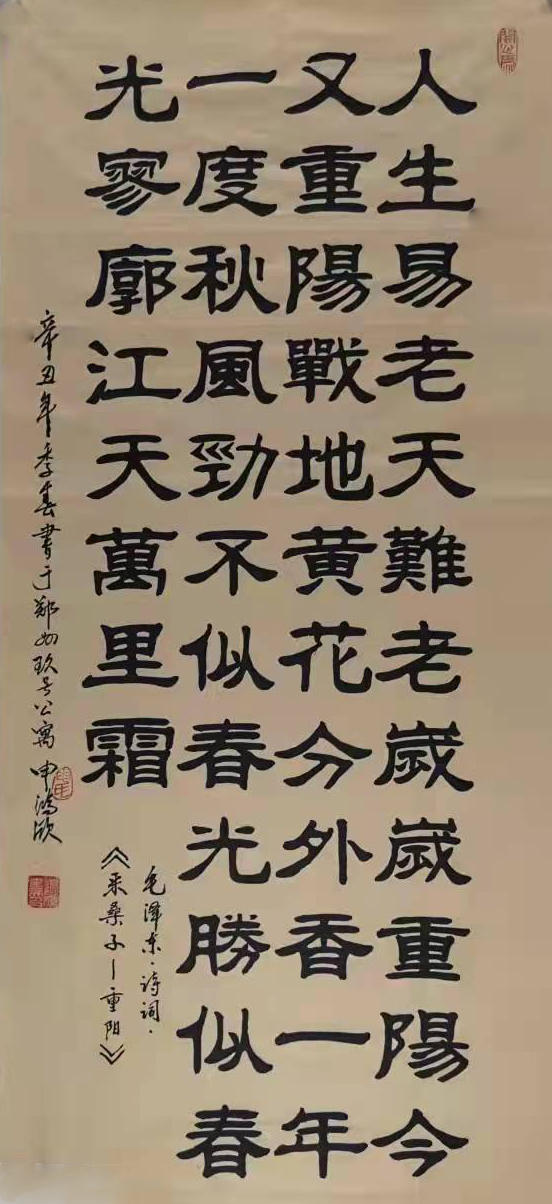 人生易老天難老歲歲重陽今
又重陽戰地黄花分外香一年
一度秋風勁不似春光勝似春
光寥廓江天萬里霜
毛泽东·诗词·
《采桑子—重阳》
辛丑年季春書于郑州玖号公寓 申鸿欣